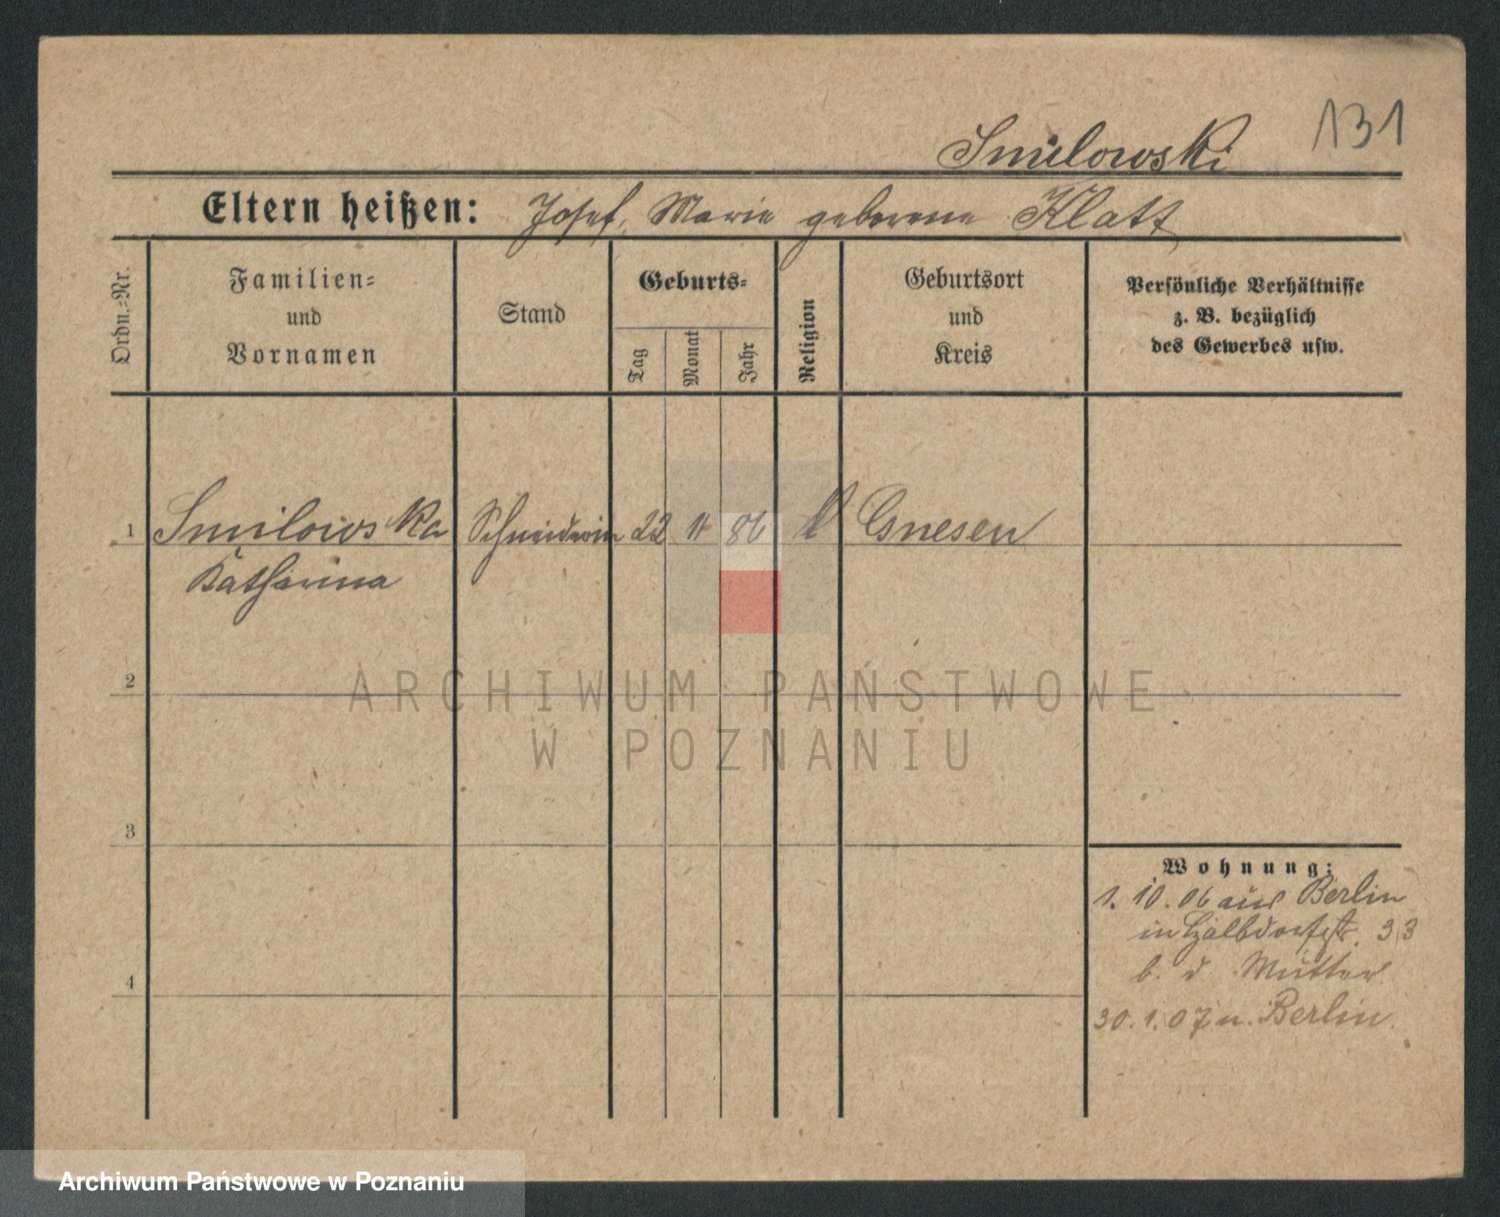 131
Smilowski
Eltern heißen: Josef, Marie geborene Klatt
Ordn.=Nr.
Familien=
und
Vornamen
Stand
Geburts=
Tag
Monat
Jahr
Religion
Geburtsort
und
Kreis
Persönliche Verhältnisse
z. B. bezüglich
des Gewerbes usw.
1 Smilowska Schneiderin 22 11 86 Gnesen
Katharina
2
ARCHIWUM PAŃSTWOWE
W POZNANIU
3
Wohnung:
1. 10. 06 aus Berlin
in Halbdorfstr. 33
b. d Mutter
4
30. 1. 07 n. Berlin.
Archiwum Państwowe w Poznaniu